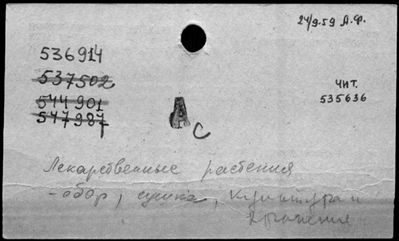 24/9.59 А.Ф.
536914
537502
544901
547987
чит.
535636
А
С
Лекарственные растения
- сбор, сушка, культура и
хранения